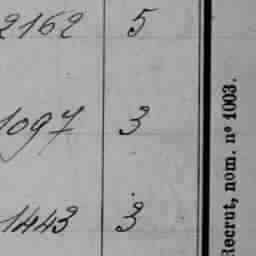 2162 5
1097 3
1443 3
Recrut, nom. nº 1003.